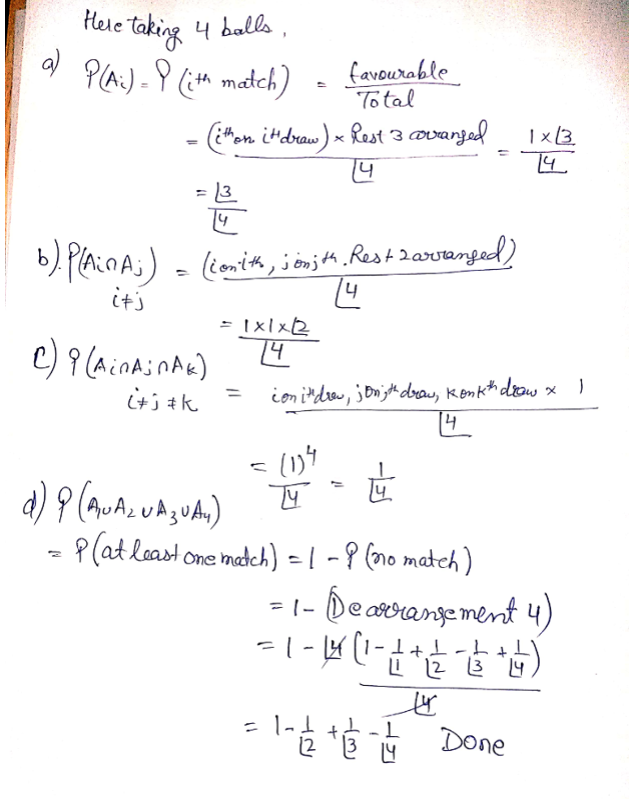 Here taking 4 balls,
a) P(Ai) = P(ith match) = favourable / Total
= (ith on ith draw) × Rest 3 arranged / ⌊4 = 1×⌊3 / ⌊4
= ⌊3 / ⌊4
b). P(Ai∩Aj) = (i on ith, j on jth. Rest 2 arranged) / ⌊4
i≠j
= 1×1×⌊2 / ⌊4
c) P(Ai∩Aj∩Ak)
i≠j≠k = i on ith draw, j on jth draw, k on kth draw × 1 / ⌊4
= (1)^4 / ⌊4 = 1 / ⌊4
d) P(A1∪A2∪A3∪A4)
= P(at least one match) = 1 - P(no match)
= 1 - (Dearrangement 4)
= 1 - ⌊4 (1 - 1/⌊1 + 1/⌊2 - 1/⌊3 + 1/⌊4) / ⌊4
= 1 - 1/⌊2 + 1/⌊3 - 1/⌊4 Done